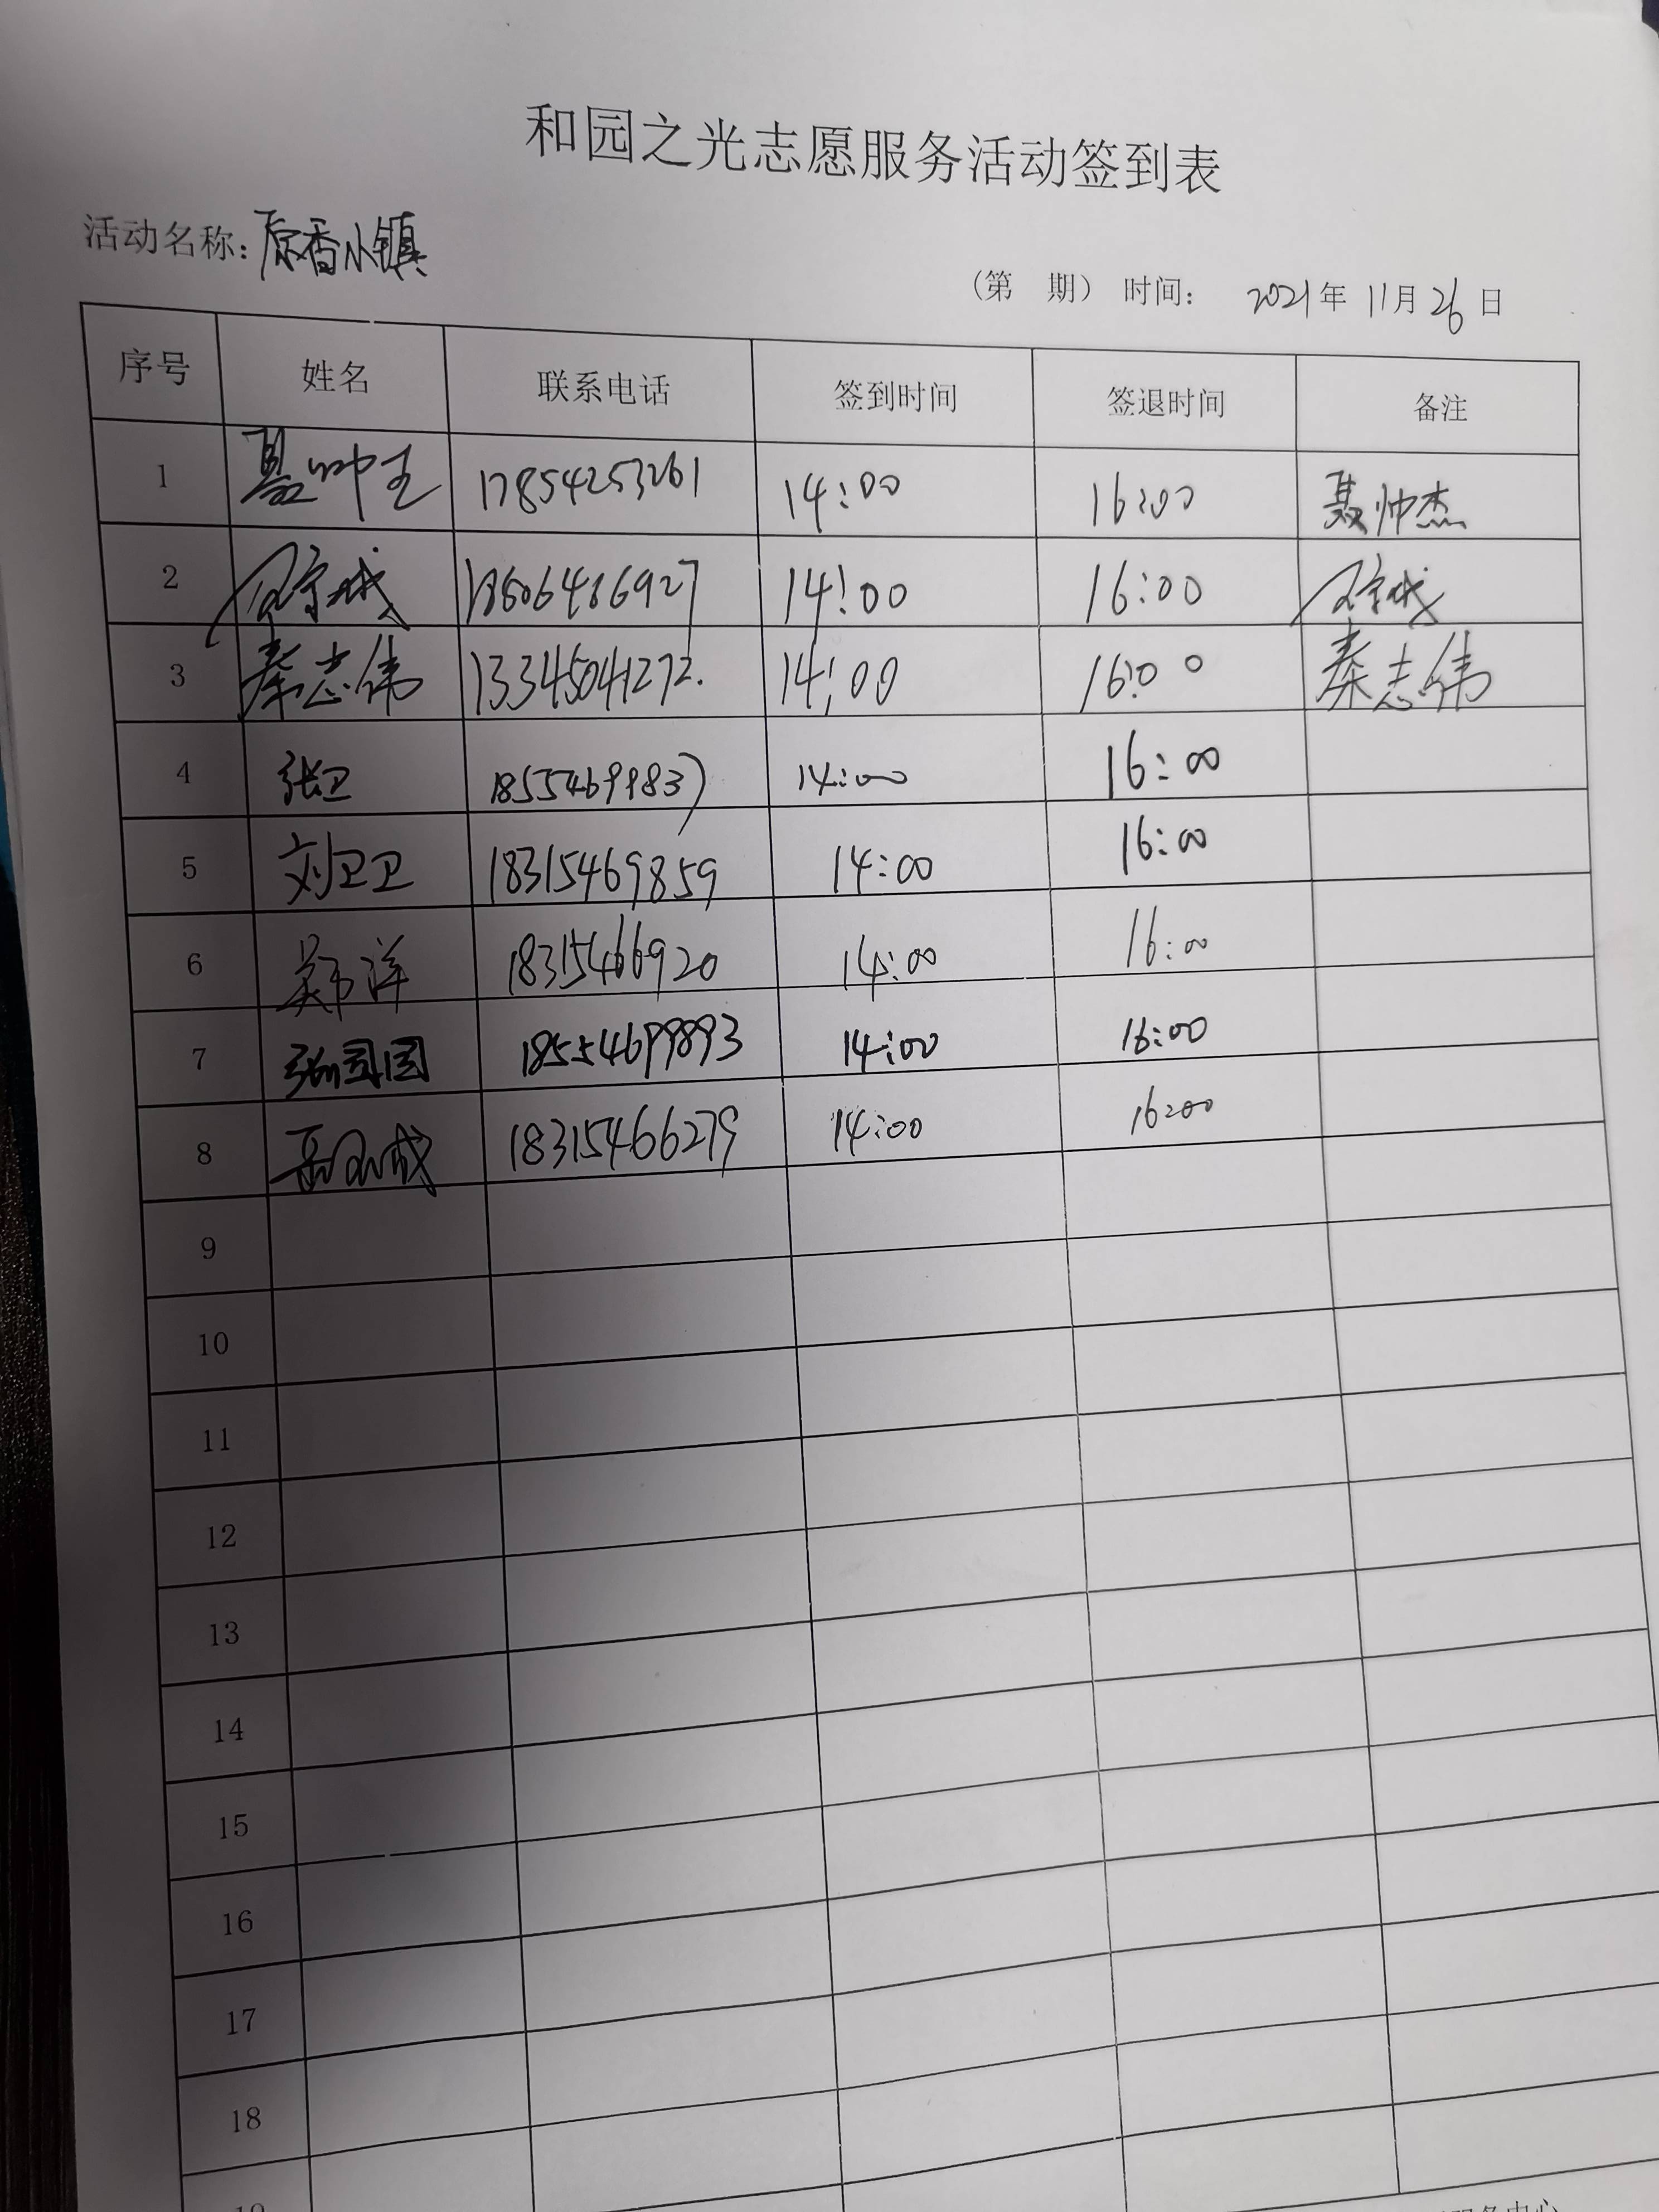 和园之光志愿服务活动签到表
活动名称:原香小镇
(第 期) 时间: 2021年11月26日
序号 姓名 联系电话 签到时间 签退时间 备注
1 17854253261 14:00 16:00 聂帅杰
2 14:00 16:00
3 秦志伟 13345041272. 14:00 16:00 秦志伟
4 张卫 14:00 16:00
5 刘卫卫 18315469859 14:00 16:00
6 18315466920 14:00 16:00
7 18554699893 14:00 16:00
8 18315466279 14:00 16:00
9
10
11
12
13
14
15
16
17
18
19